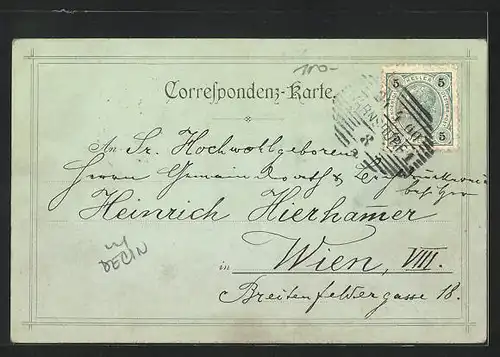 100-
Correspondenz-Karte.
5 HELLER 5
5 5
An Sr. Hochwohlgeboren
Herrn Gemeinderath &
besitzer
Heinrich Hierhamer
in Wien, VIII.
Breitenfeldergasse 18.
DECIN